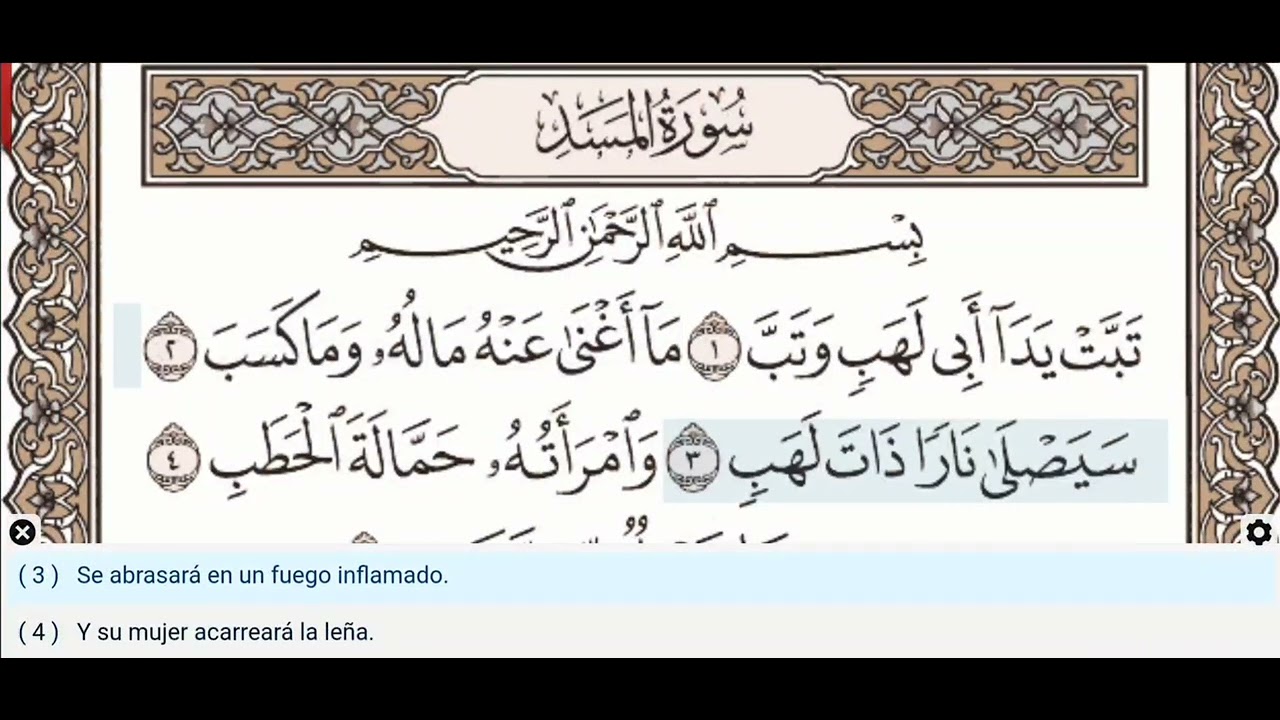 سُورَةُ المَسَدِ
بِسْمِ ٱللَّهِ ٱلرَّحْمَٰنِ ٱلرَّحِيمِ
تَبَّتْ يَدَآ أَبِى لَهَبٍ وَتَبَّ ١ مَآ أَغْنَىٰ عَنْهُ مَالُهُۥ وَمَا كَسَبَ ٢
سَيَصْلَىٰ نَارًا ذَاتَ لَهَبٍ ٣ وَٱمْرَأَتُهُۥ حَمَّالَةَ ٱلْحَطَبِ ٤
( 3 ) Se abrasará en un fuego inflamado.
( 4 ) Y su mujer acarreará la leña.